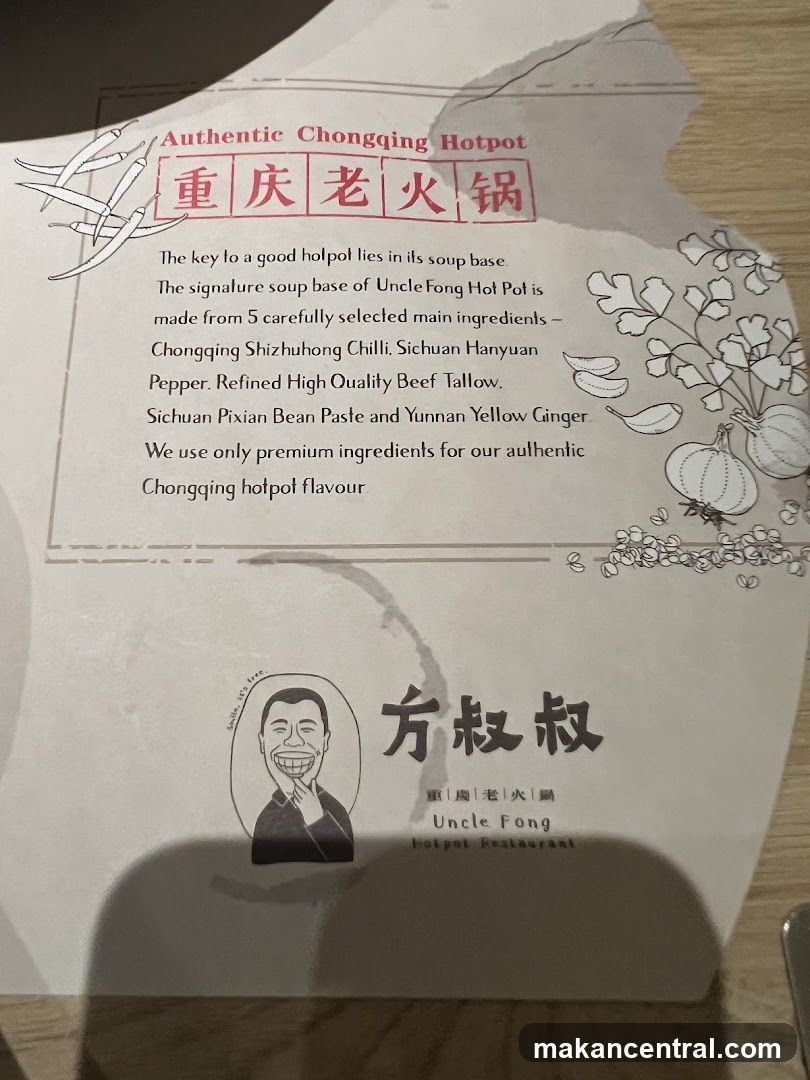 Authentic Chongqing Hotpot
重庆老火锅
The key to a good hotpot lies in its soup base.
The signature soup base of Uncle Fong Hot Pot is
made from 5 carefully selected main ingredients –
Chongqing Shizhuhong Chilli, Sichuan Hanyuan
Pepper, Refined High Quality Beef Tallow,
Sichuan Pixian Bean Paste and Yunnan Yellow Ginger.
We use only premium ingredients for our authentic
Chongqing hotpot flavour.
smile, it's free.
方叔叔
重|慶|老|火|鍋
Uncle Fong
Hotpot Restaurant
makancentral.com